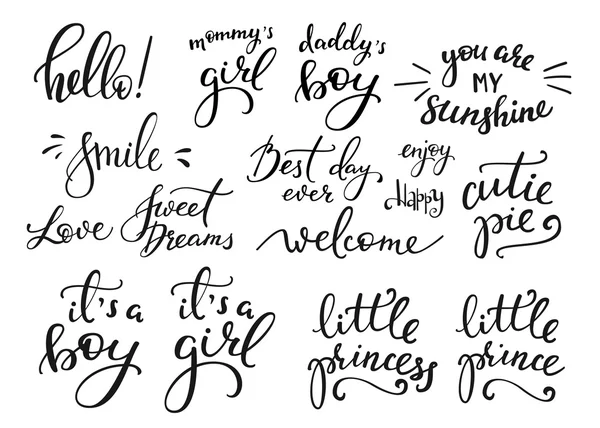 hello!
mommy's
girl
daddy's
boy
you are
MY
sunshine
smile
Best day
ever
enjoy
Happy
cutie
pie
Love
Sweet
Dreams
welcome
it's a
boy
it's a
girl
little
princess
little
prince